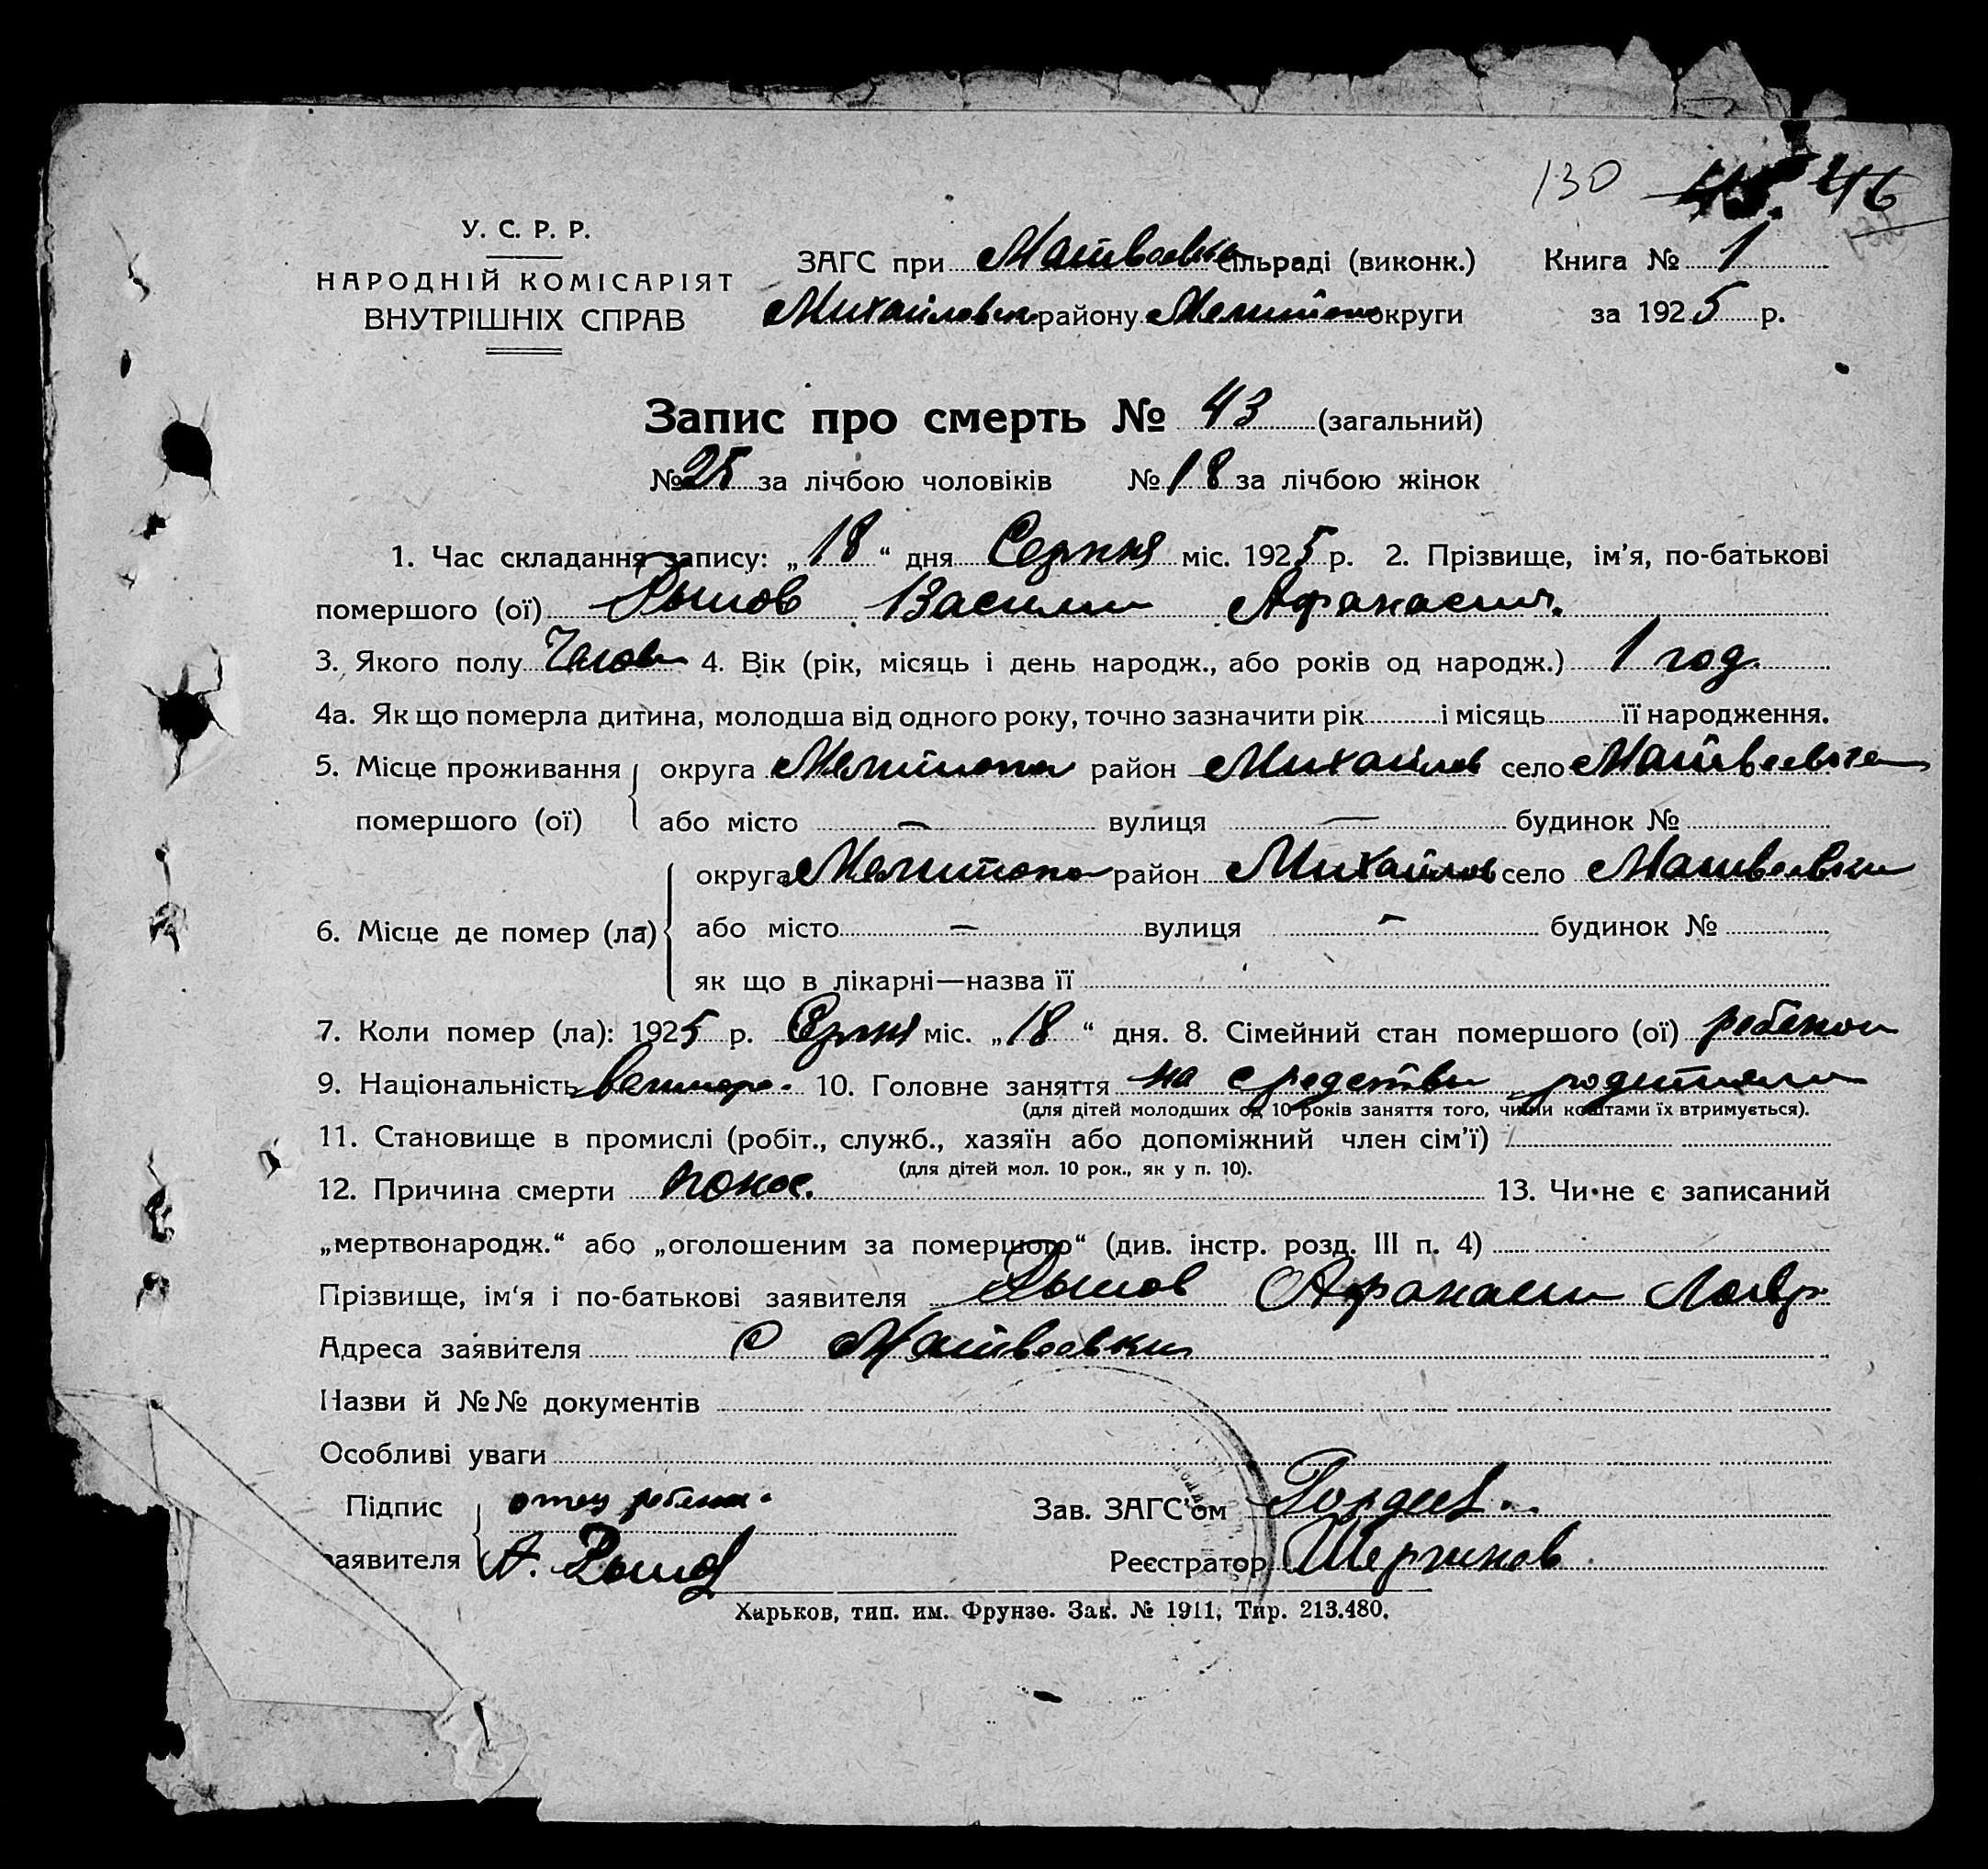 130 45. 46
У. С. Р. Р.
НАРОДНІЙ КОМІСАРІЯТ
ВНУТРІШНІХ СПРАВ
ЗАГС при Матвеевке сільраді (виконк.) Книга № 1
Михайловск району Мелитоп округи за 1925 р.
Запис про смерть № 43 (загальний)
№ 25 за лічбою чоловіків № 18 за лічбою жінок
1. Час складання запису: „18“ дня Серпня міс. 1925 р. 2. Прізвище, ім'я, по-батькові
помершого (ої) Рыжов Василий Афанасич.
3. Якого полу Чолов 4. Вік (рік, місяць і день народж., або років од народж.) 1 год.
4а. Як що померла дитина, молодша від одного року, точно зазначити рік і місяць її народження.
5. Місце проживання округа Мелитопол район Михайлов село Матвеевке
помершого (ої) або місто — вулиця — будинок №
округа Мелитопол район Михайлов село Матвеевки
6. Місце де помер (ла) або місто — вулиця — будинок №
як що в лікарні—назва її
7. Коли помер (ла): 1925 р. Серпня міс. „18“ дня. 8. Сімейний стан помершого (ої) ребенок
9. Національність 10. Головне заняття на средства родители
(для дітей молодших од 10 років заняття того, чиїми коштами їх втримується).
11. Становище в промислі (робіт., служб., хазяїн або допоміжний член сім'ї)
(для дітей мол. 10 рок., як у п. 10).
12. Причина смерти понос. 13. Чи не є записаний
„мертвонародж.“ або „оголошеним за помершого“ (див. інстр. розд. III п. 4)
Прізвище, ім'я і по-батькові заявителя Рыжов Афанасий
Адреса заявителя С Матвеевки
Назви й №№ документів
Особливі уваги
Підпис отец ребенка. Зав. ЗАГС'ом Гордеев.
заявителя А. Рыжов Реєстратор
Харьков, тип. им. Фрунзе. Зак. № 1911. Тир. 213.480.